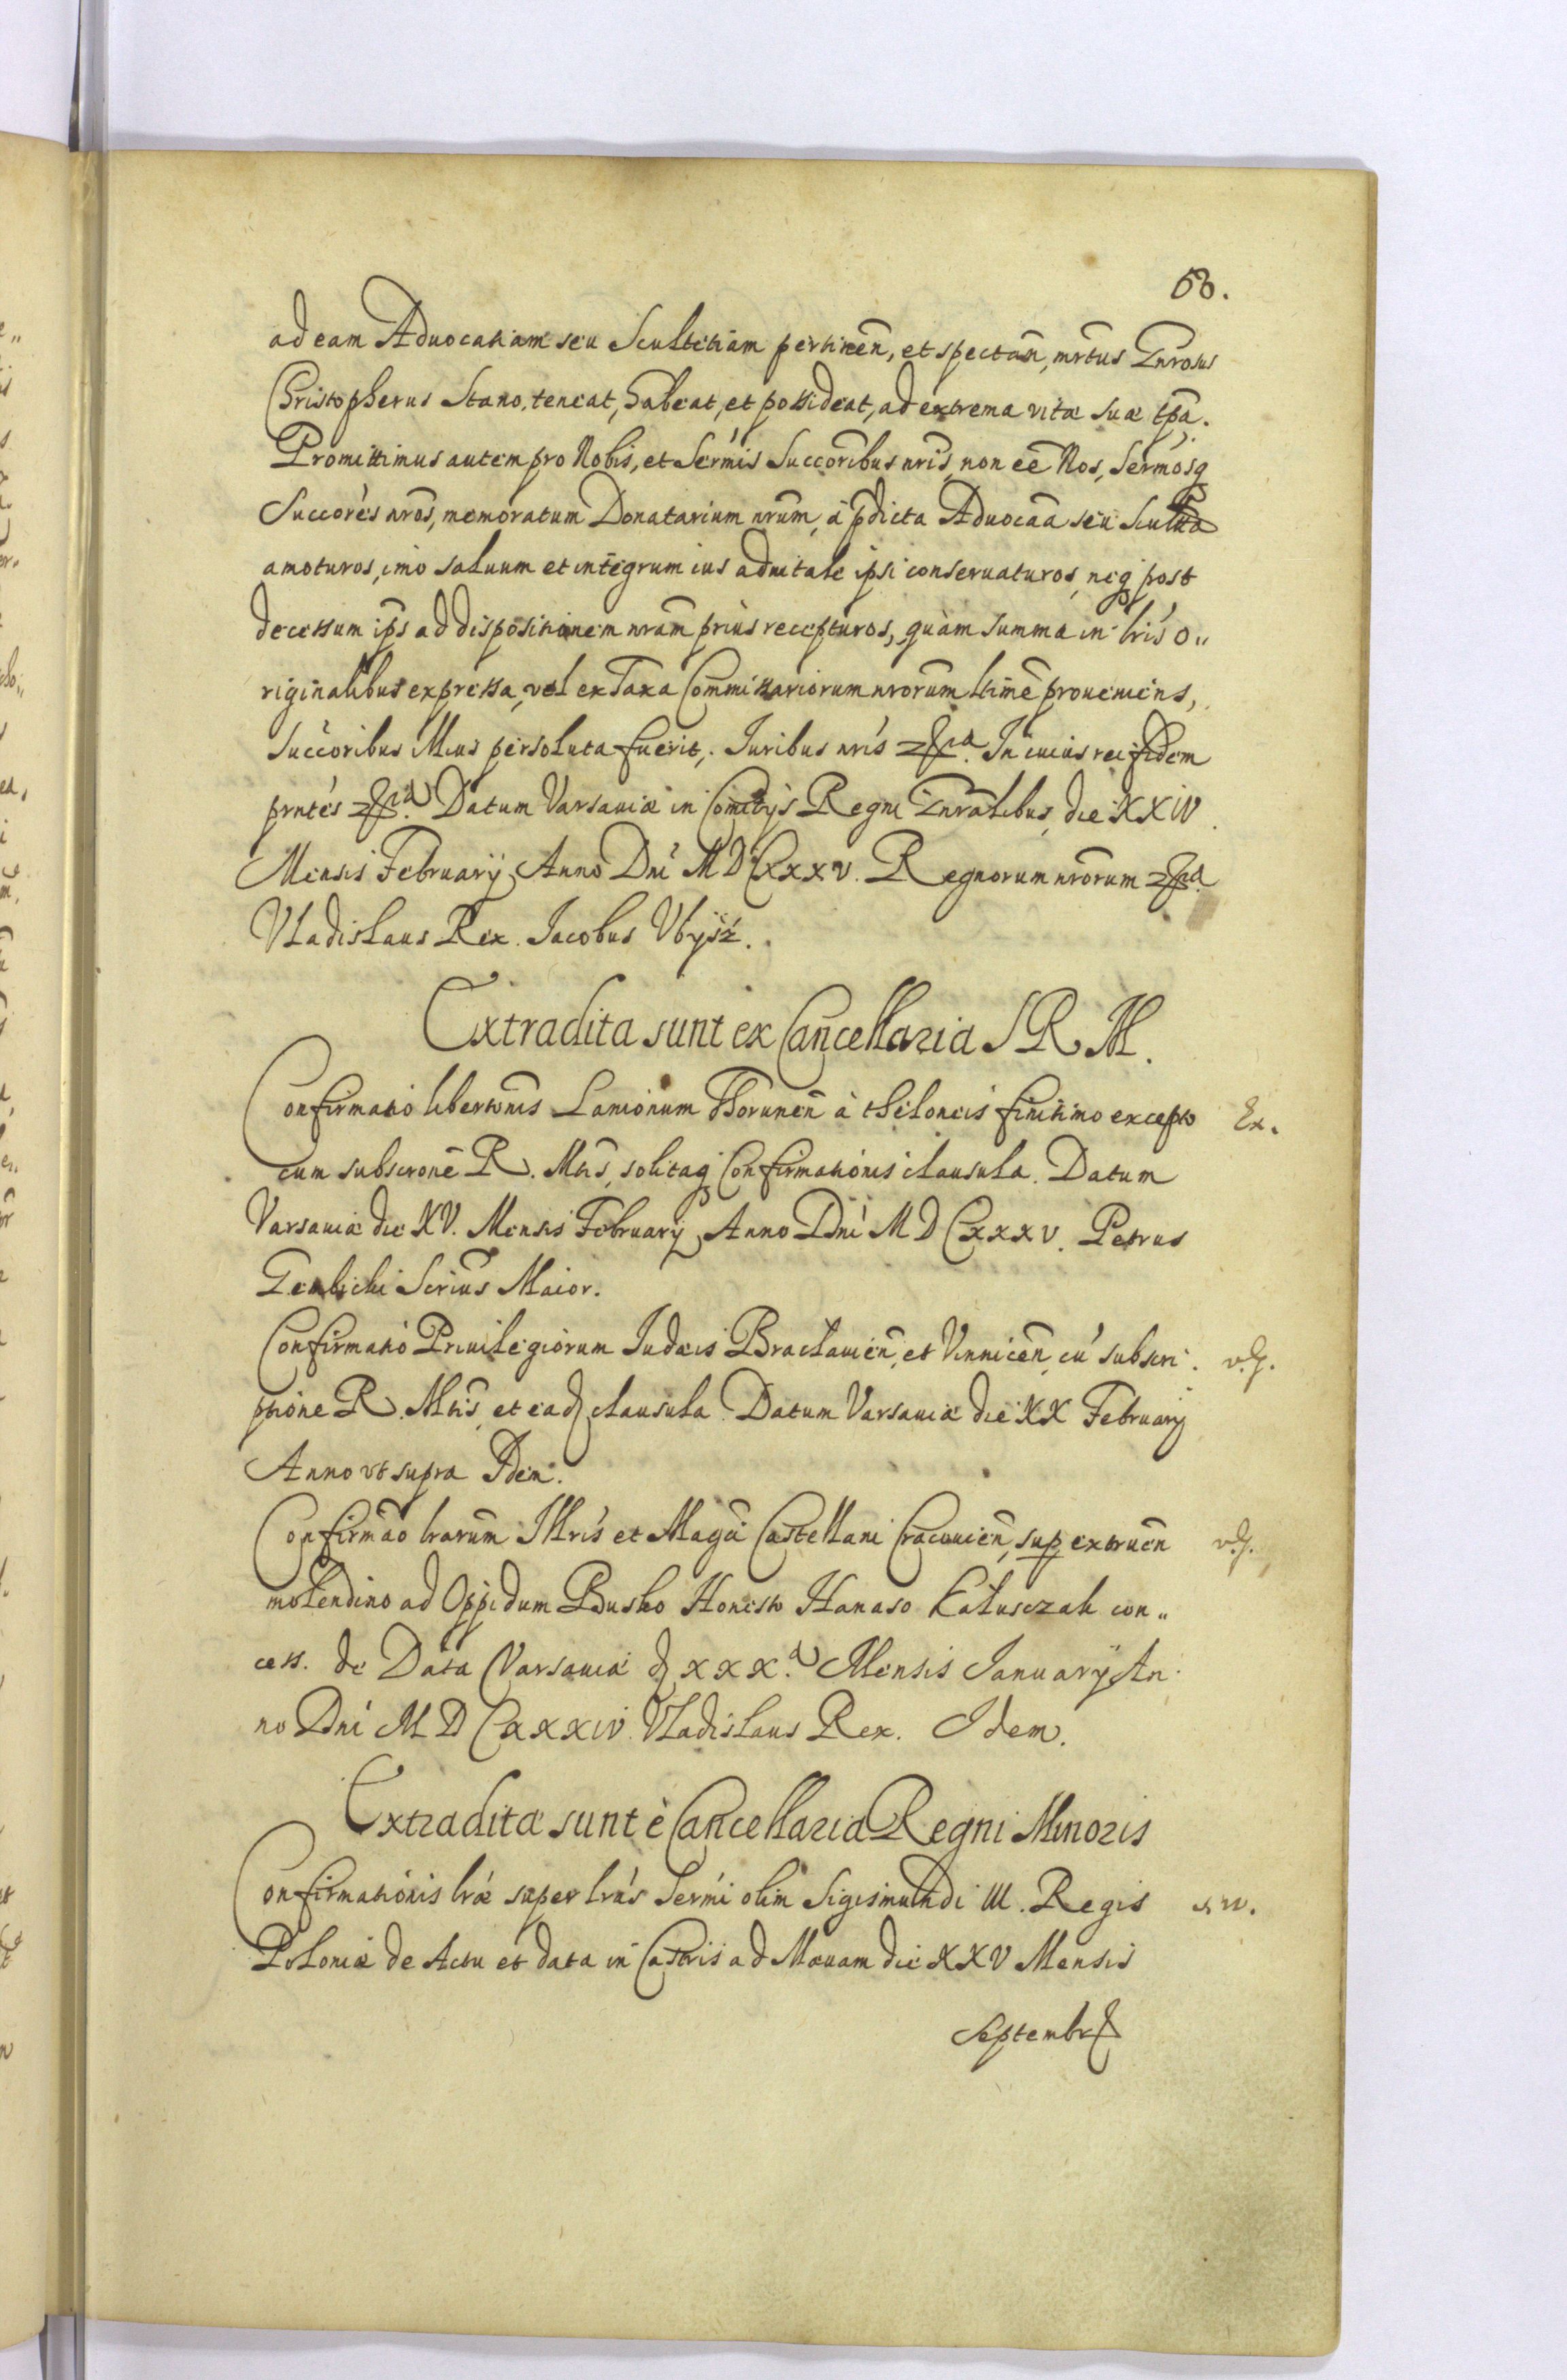 58.
ad eam Aduocatiam seu Scultetiam pertineñ, et spectañ, mrtus Gnrosus
Christopherus Stano, teneat, habeat, et possideat, ad extrema vitæ suæ tpa.
Promittimus autem pro Nobis, et Sermis Succoribus nris, non eē Nos, Sermosq
Succores nros, memoratum Donatarium nrum, à pdicta Aduocaa seu
amoturos, imo saluum et integrum ius aduitale ipsi conseruaturos, neq post
decessum ips ad dispositionem nram prius recepturos, quàm summa in lris o„
riginalibus expressa, vel ex Taxa Commissariorum nrorum ltimē proueniens,
Succoribus illius persoluta fuerit, Iuribus nris In cuius rei fidem
prntes Datum Varsauiæ in Comitijs Regni Gnralibus, die XXIV
Mensis February Anno Dni MDCXXXV. Regnorum nrorum
Vladislaus Rex. Jacobus Vbÿsz.
Extradita sunt ex Cancellaria S R M.
Confirmatio libertonis Lanionum Thorunen à theloneis finitimo excepto Ex.
cum subscronē R. Mtis, solitaq Confirmationis clausula. Datum
Varsauiæ die XV. Mensis February Anno Dni MDCXXXV. Petrus
Gembicki Scrius Maior.
Confirmatio Priuilegiorum Iudæis Braclauien, et Vinnicen, cu subscri.
ptione R. Mtis, et ead clausula. Datum Varsauiæ die XX February
Anno vt supra Idem.
Confirmao lrarum Illris et Magci Castellani Cracouien, sup extruen
molendino ad Oppidum Busko Honesto Hanaso Kałusczak con„
cess. de Data Varsauiæ d XXX. Mensis January An
no Dni MDCXXXIV. Vladislaus Rex. Idem.
Extradita sunt è Cancellaria Regni Minoris
Confirmationis lræ super lras Sermi olim Sigismundi III. Regis
Poloniæ de Actu et data in Castris ad Mæuam die XXV Mensis
Septembr